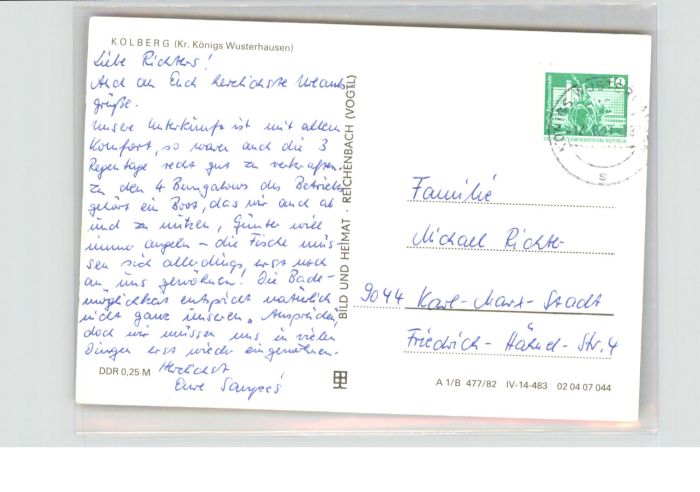 KOLBERG (Kr. Königs Wusterhausen)
Liebe Richters!
Auch an Euch herzlichste Urlaubs-
grüße.
Unsere Unterkunft ist mit allem
Komfort, so waren auch die 3
Regentage recht gut zu verkraften.
Zu den 4 Bungalows des Betriebes
gehört ein Boot, das wir auch ab
und zu nutzen, Günter will
immer angeln – die Fische müs-
sen sich allerdings erst noch
an uns gewöhnen! Die Bade-
möglichkeit entspricht natürlich
nicht ganz unseren Ansprüchen,
doch wir müssen uns in vielen
Dingen erst wieder eingewöhnen.
Herzlichst
Eure
DDR 0,25 M
BILD UND HEIMAT · REICHENBACH (VOGTL)
10
DEUTSCHE DEMOKRATISCHE REPUBLIK
Familie
Michael Richter
9044 Karl-Marx-Stadt
Friedrich-Hähnel-Str. 4
A 1/B 477/82 IV-14-483 02 04 07 044